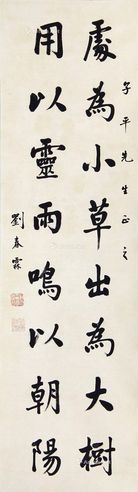 子平先生正之
處為小草出為大樹
用以靈雨鳴以朝陽
劉春霖